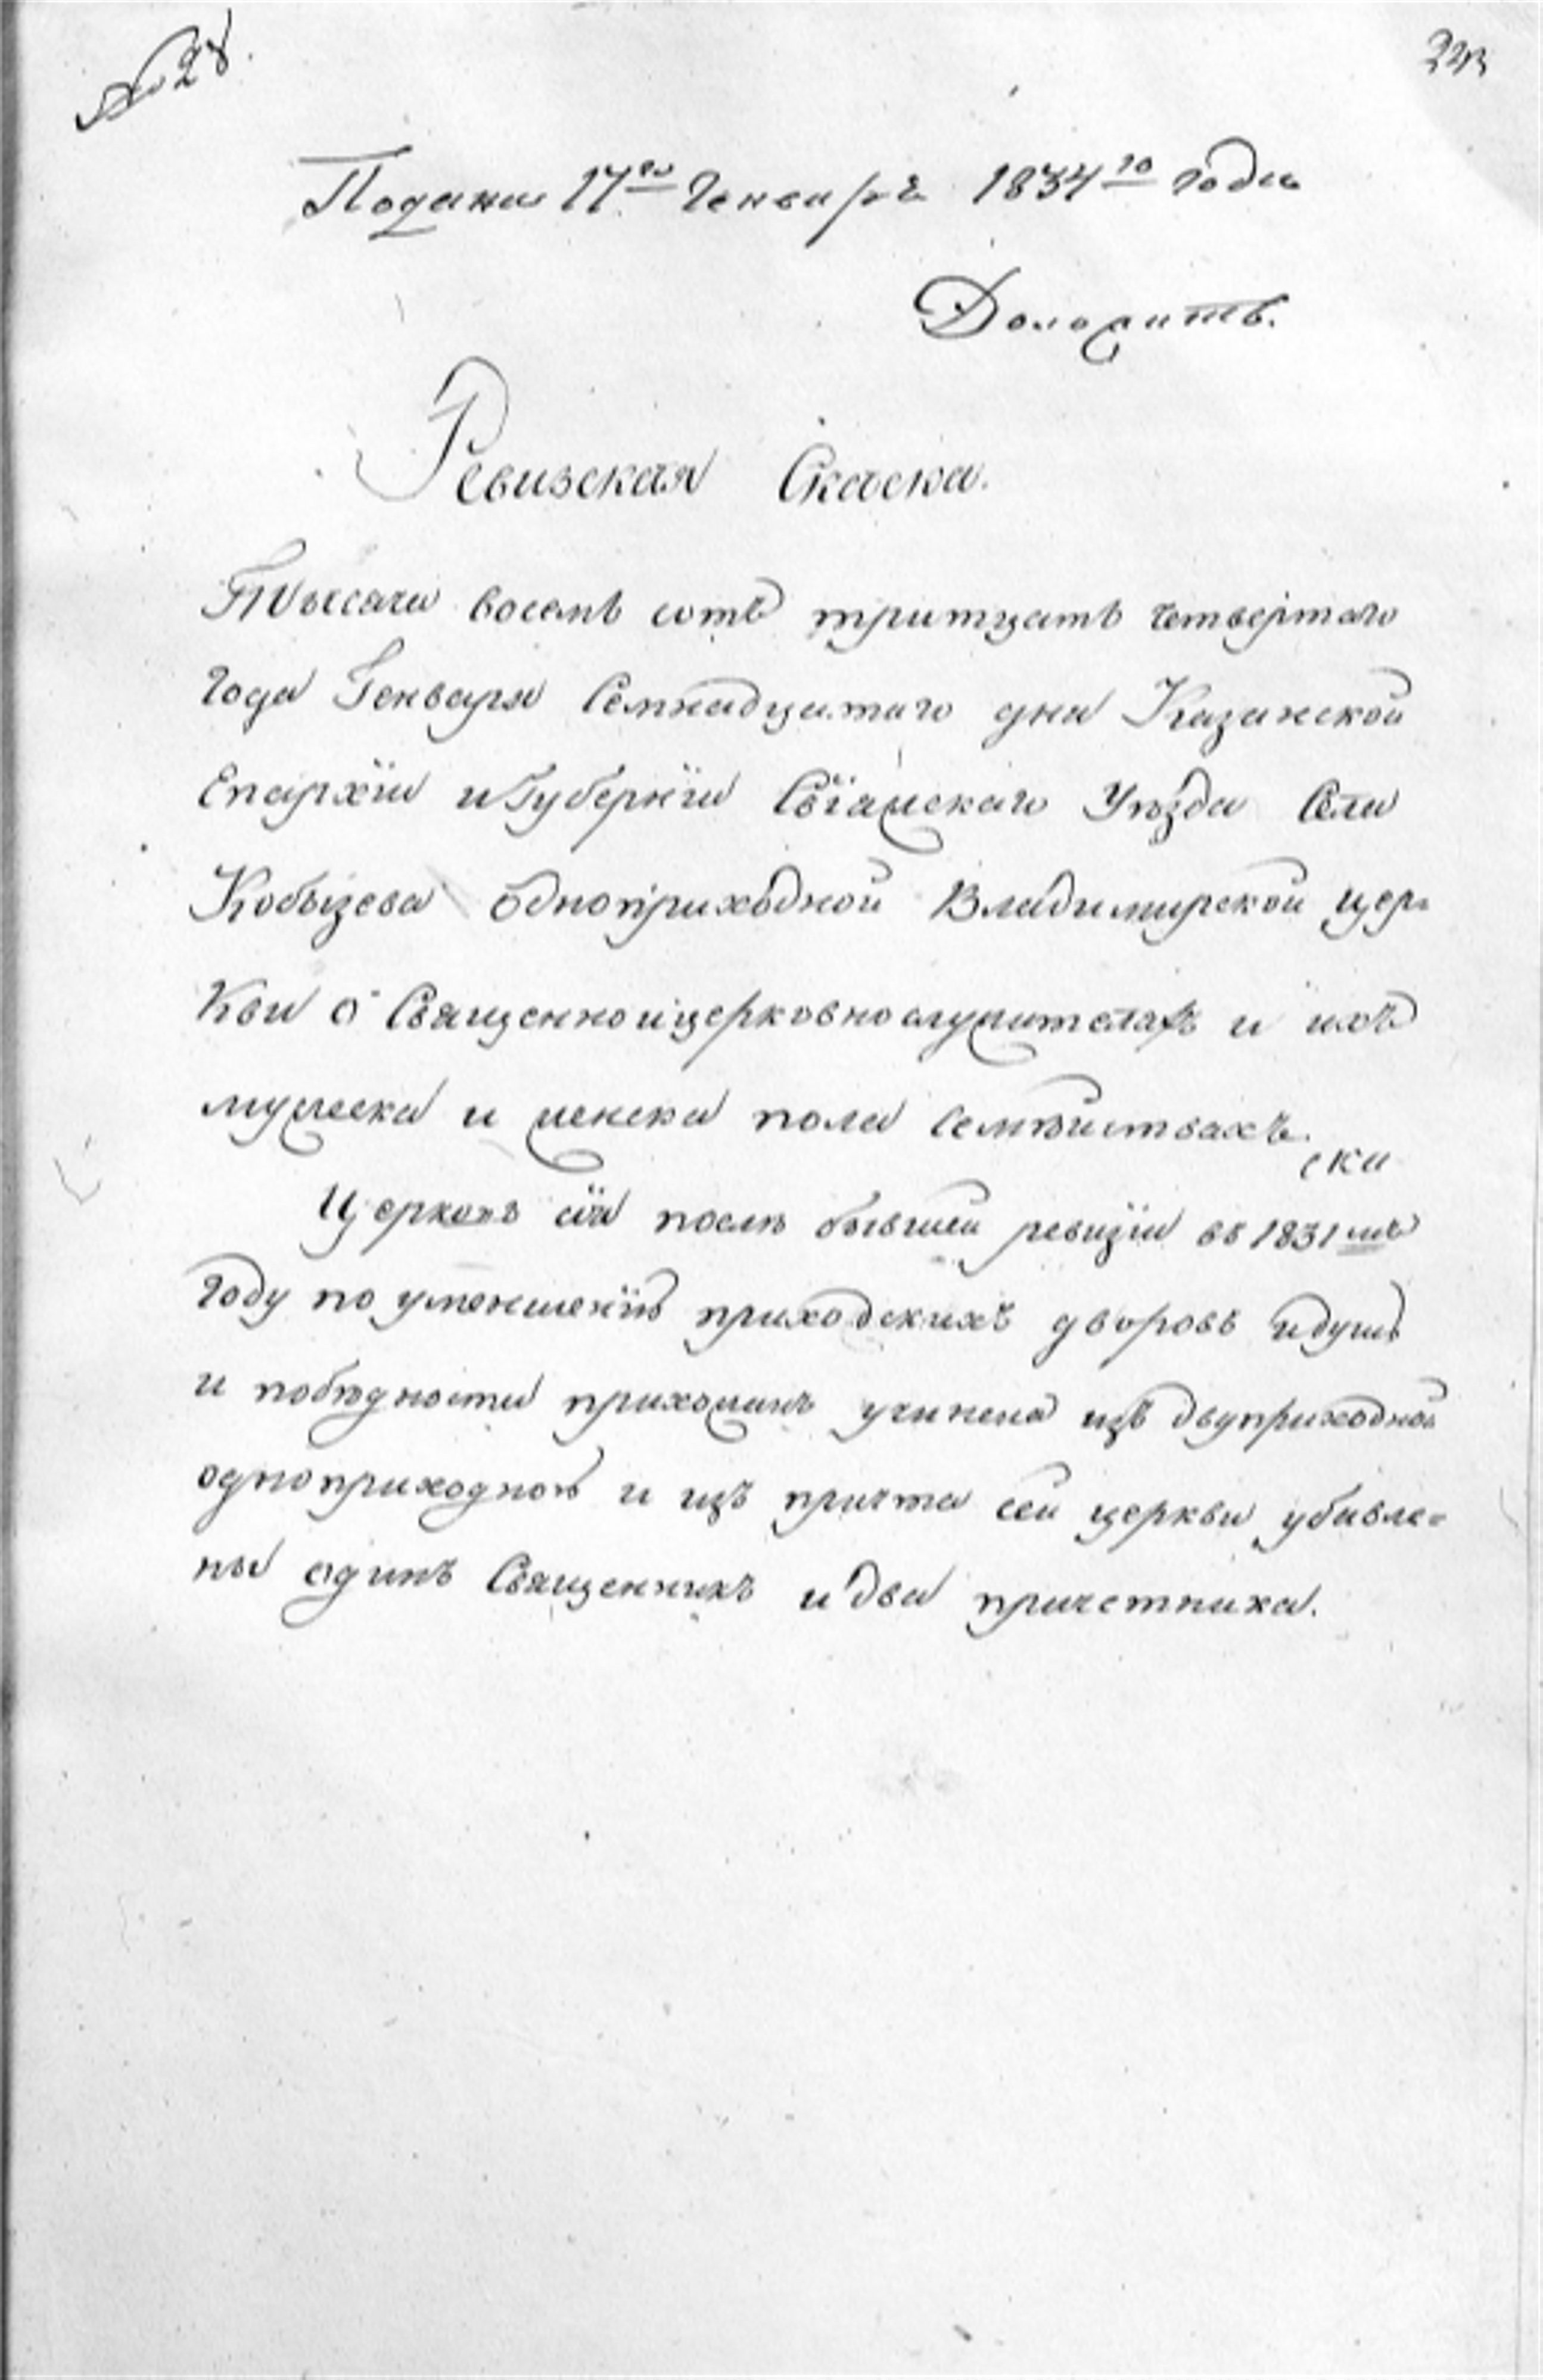 № 28.
Подана 17го Генваря 1834го года
Доложить.
Ревизская Скаска.
Тысяча восемь сотъ тритцать четвертаго
года Генваря Семнадцатаго дня Казанской
Епархїи и Губернїи Свїажскаго Уѣзда Села
Кобызева одноприходной Владимирской цер-
кви о Священно и церковнослужителяхъ и ихъ
мужеска и женска пола семѣйствахъ.
Церковь сїя послѣ бывшей ревизїи въ 1831мъ
году по уменшенїю приходскихъ дворовъ и душъ
и по бѣдности прихожанъ учинена изъ двуприходной
одноприходною и изъ причта сей церкви убавле-
ны одинъ Священникъ и два причетника.